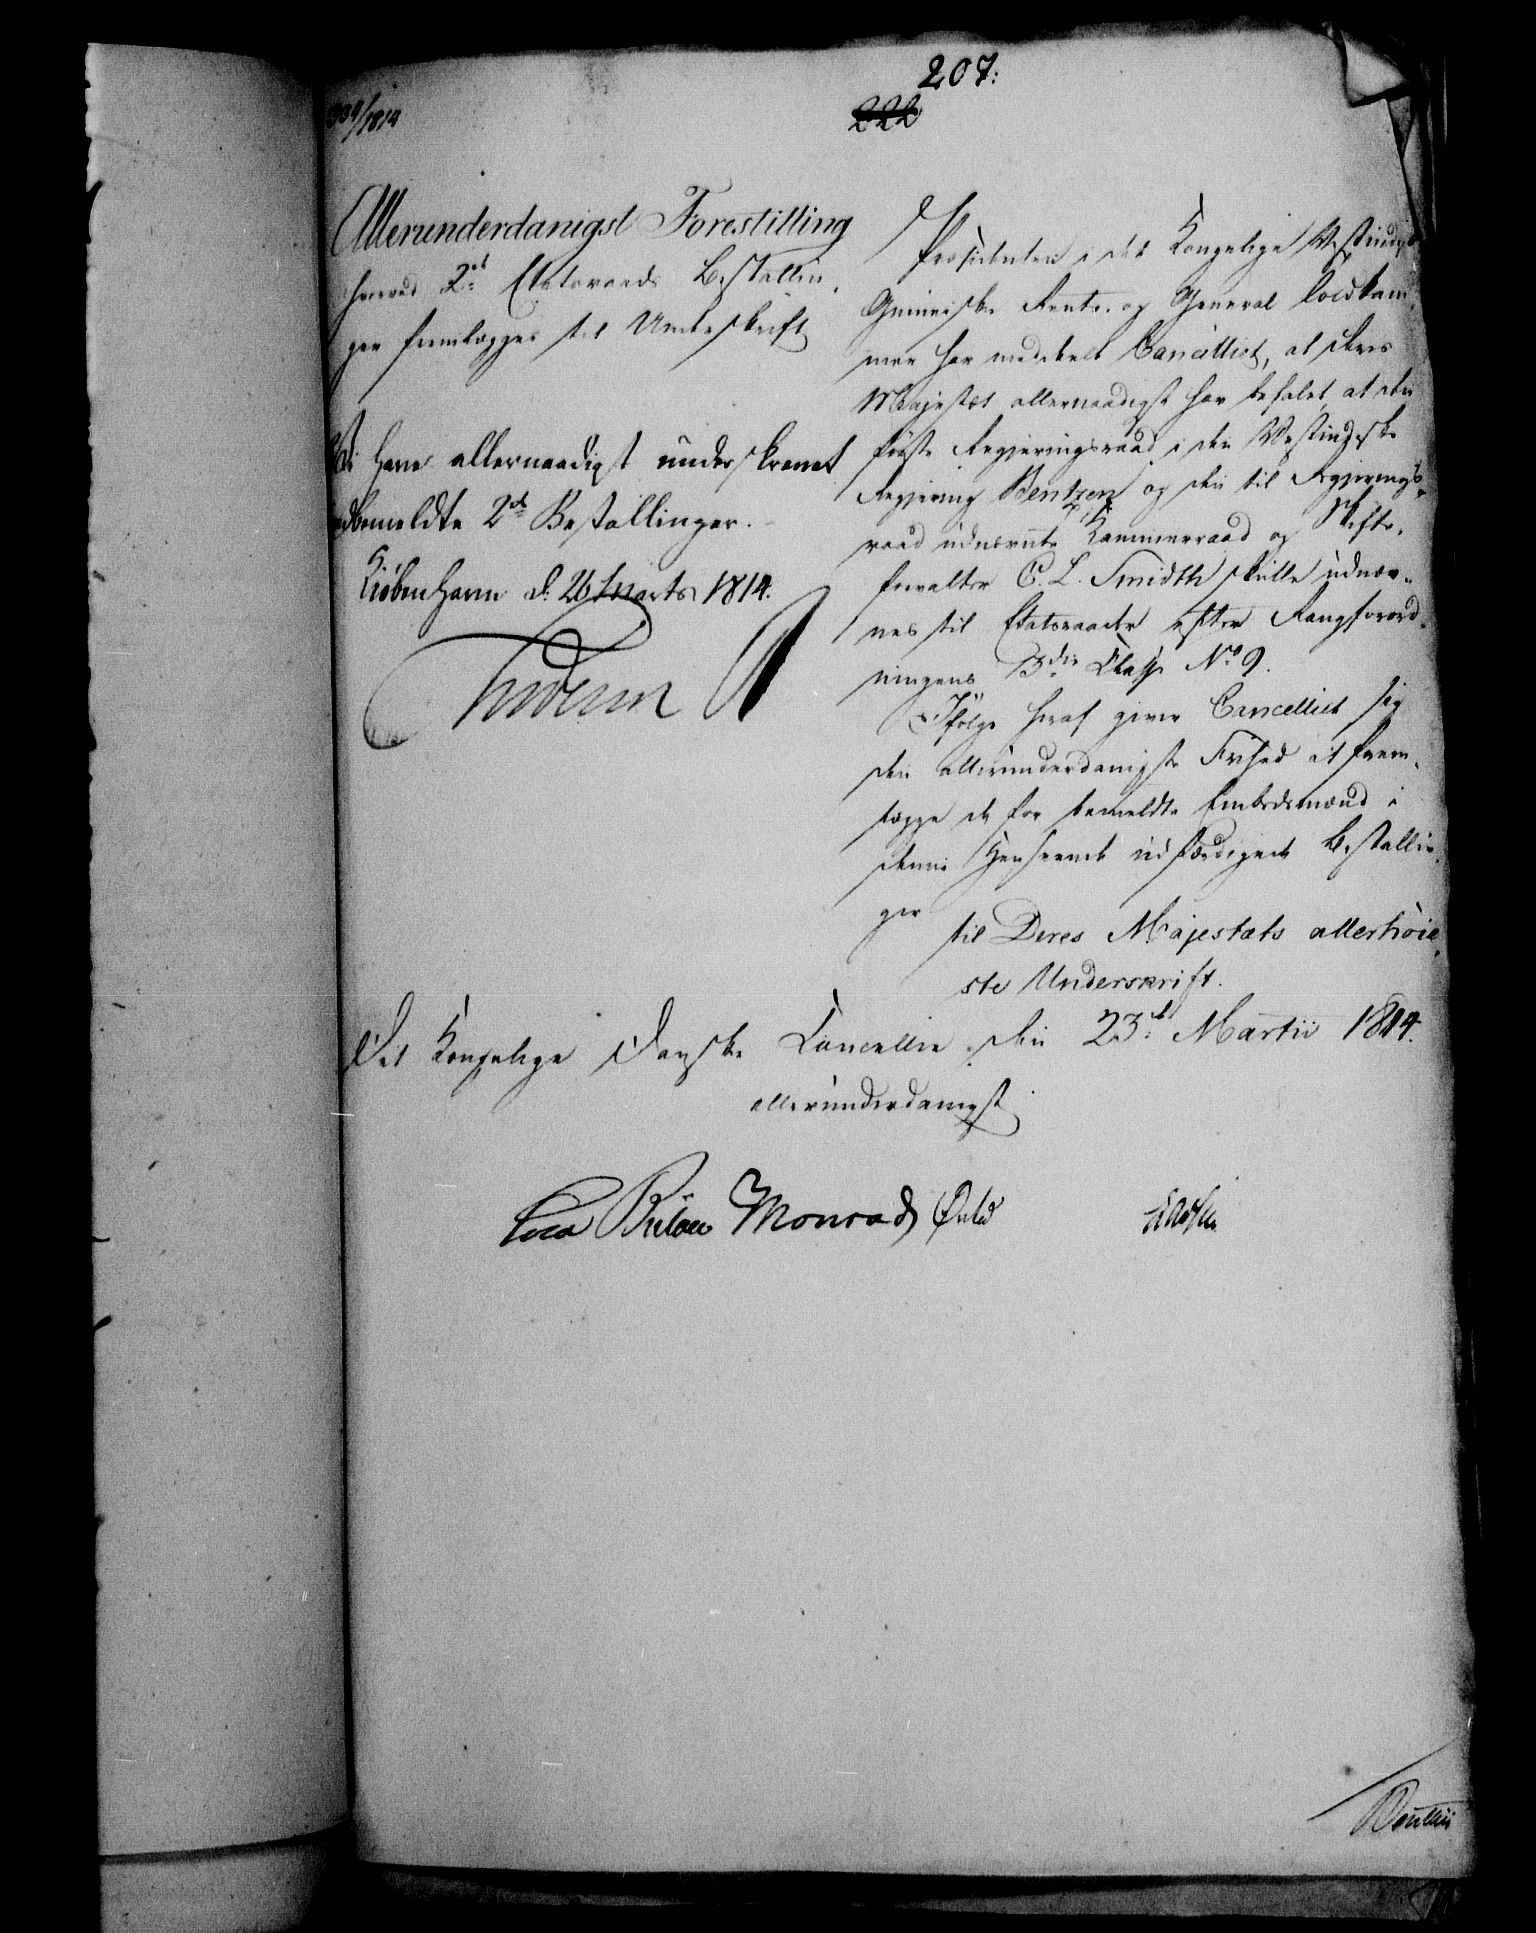 207.
222
934/1814
Allerunderdanigst Forestilling
hvorved 2de Etatsraads Bestallin-
ger fremlægges til Underskrift
Vi have allernaadigst underskrevet
bemeldte 2de Bestallinger.
Kiöbenhavn d. 26 Marts 1814.
Frederik R
Præsidenten i det Kongelige Vestindisk
Guineiske Rente- og General Toldkam-
mer har meddeelt Cancelliet, at Deres
Majestæt allernaadigst har befalet, at den
förste Regjeringsraad i den Vestindiske
Regjering Bentzon og den til Regjerings-
raad udnævnte Kammerraad og Skifte-
forvalter C. L. Smidth skulle udnæv-
nes til Etatsraader efter Rangforord-
ningens 3die Classe No 9.
Ifölge heraf giver Cancelliet sig
den allerunderdanigste Frihed at frem-
lægge de for bemeldte Embedsmænd i
denne Henseende udfærdigede Bestallin-
ger
til Deres Majestæts allerhöie-
ste Underskrift.
Det Kongelige Danske Cancellie den 23de Martii 1814.
allerunderdanigst
Bülow Monrad